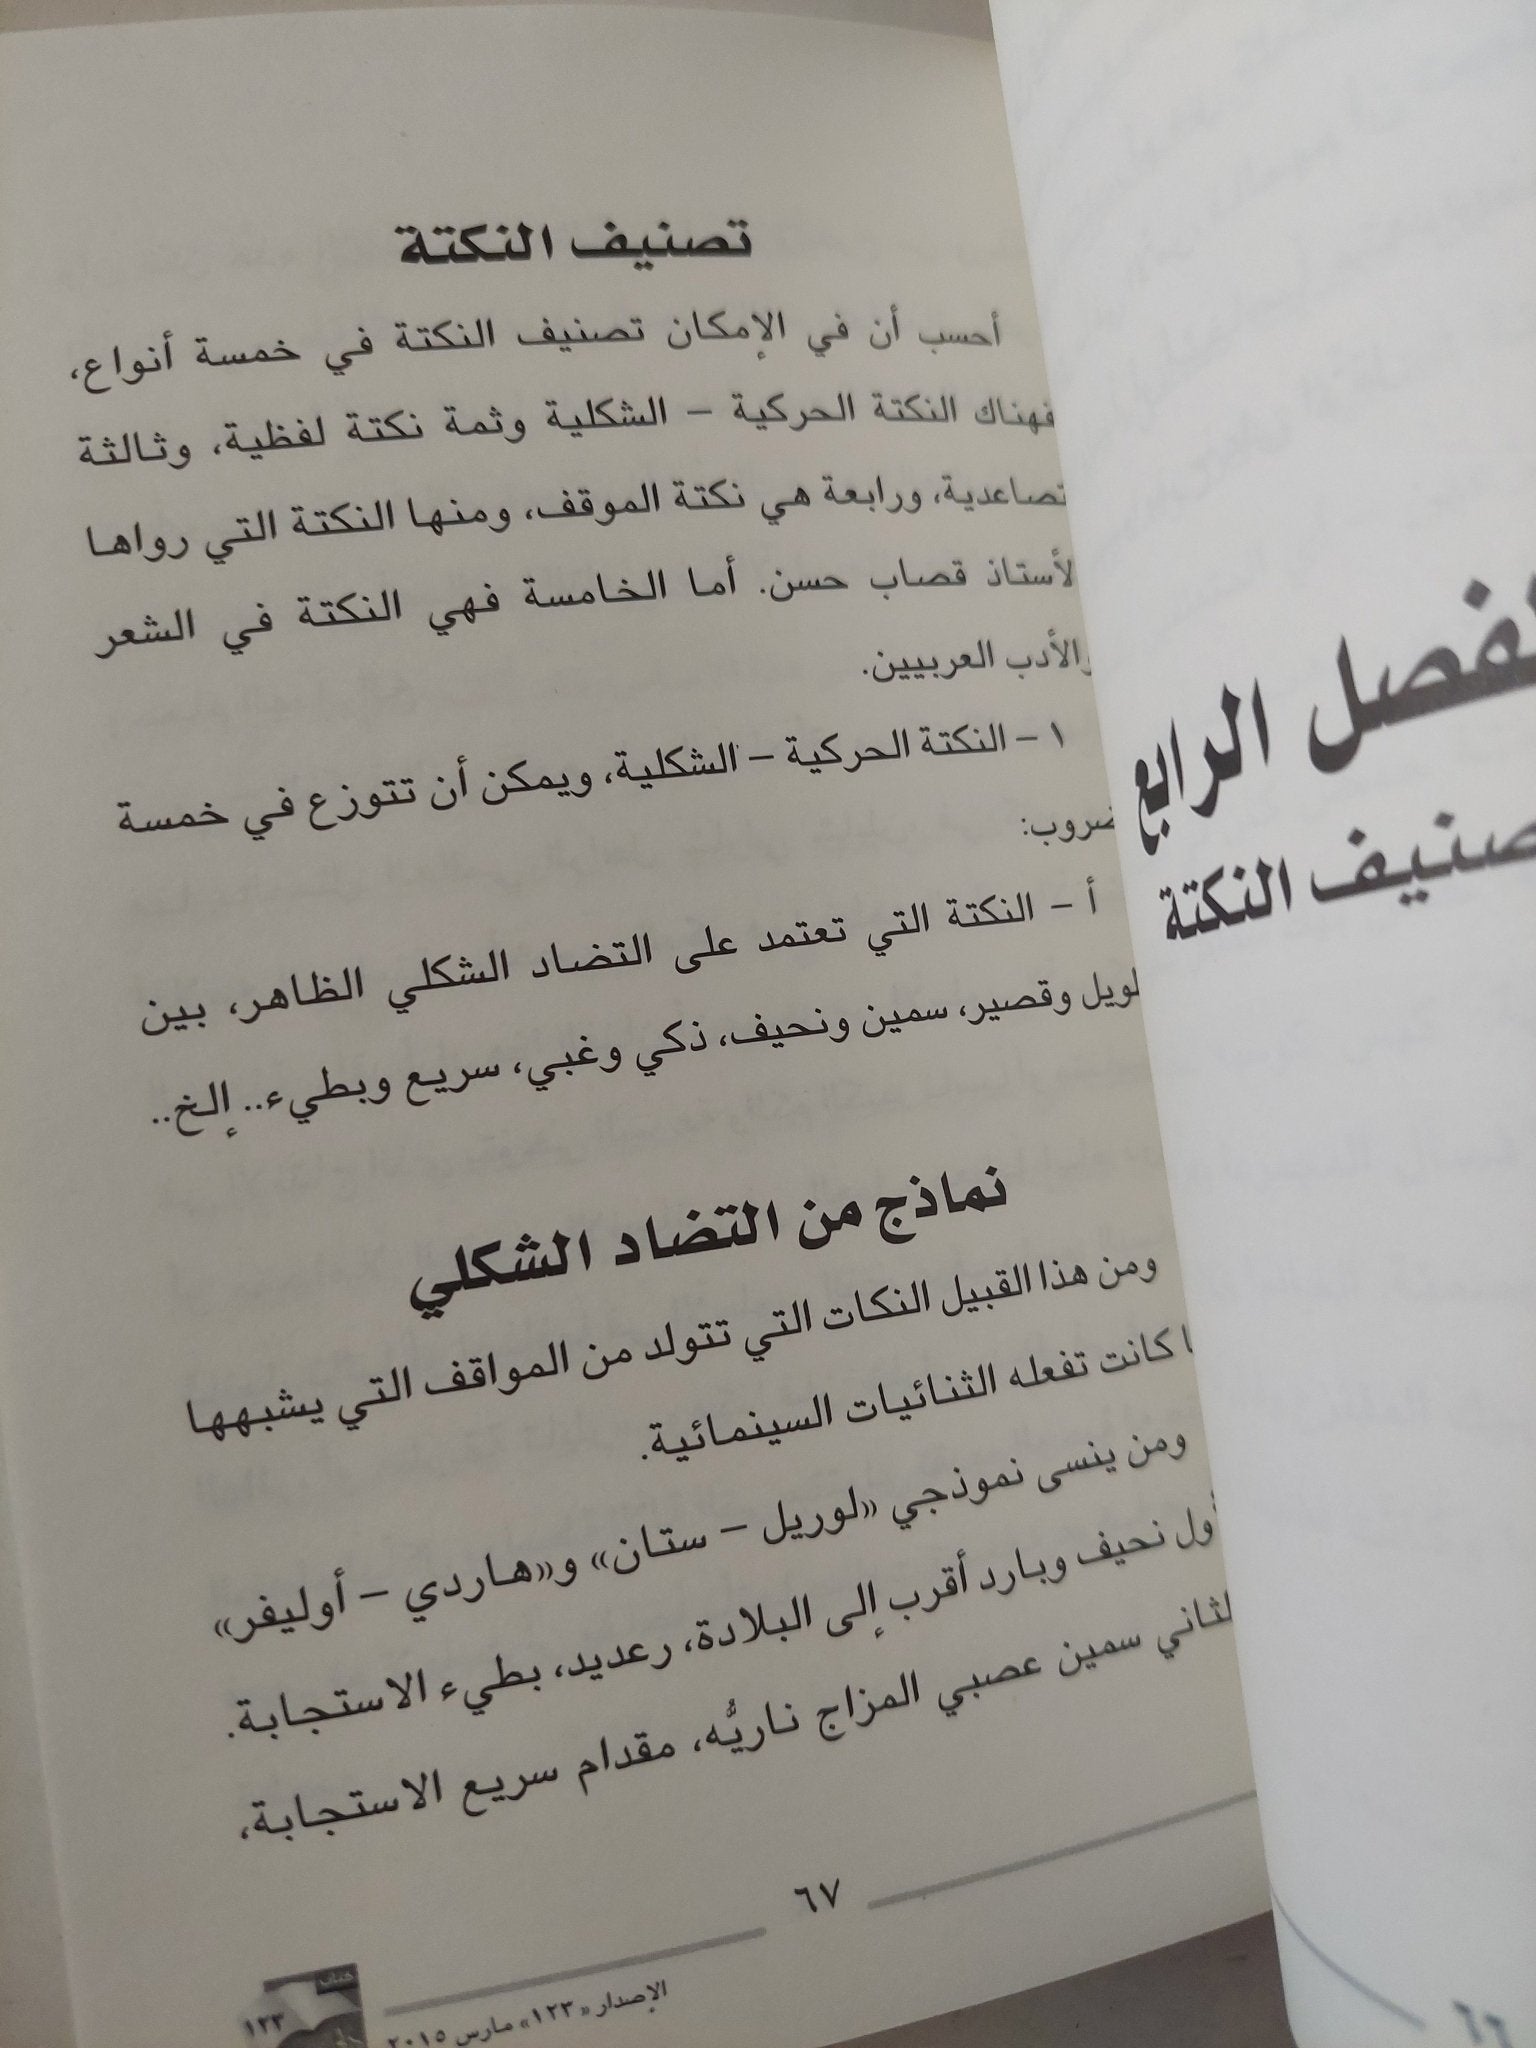 الرابع
النكتة
٦٦
تصنيف النكتة
أحسب أن في الإمكان تصنيف النكتة في خمسة أنواع،
فهناك النكتة الحركية – الشكلية وثمة نكتة لفظية، وثالثة
تصاعدية، ورابعة هي نكتة الموقف، ومنها النكتة التي رواها
لأستاذ قصاب حسن. أما الخامسة فهي النكتة في الشعر
والأدب العربيين.
١ – النكتة الحركية – الشكلية، ويمكن أن تتوزع في خمسة
ضروب:
أ – النكتة التي تعتمد على التضاد الشكلي الظاهر، بين
لويل وقصير، سمين ونحيف، ذكي وغبي، سريع وبطيء.. إلخ..
نماذج من التضاد الشكلي
ومن هذا القبيل النكات التي تتولد من المواقف التي يشبهها
كانت تفعله الثنائيات السينمائية.
ومن ينسى نموذجي «لوريل – ستان» و«هاردي – أوليفر»
أول نحيف وبارد أقرب إلى البلادة، رعديد، بطيء الاستجابة.
لثاني سمين عصبي المزاج ناريُّه، مقدام سريع الاستجابة،
٦٧
الإصدار «١٢٣» مارس ٢٠١٥
١٢٣